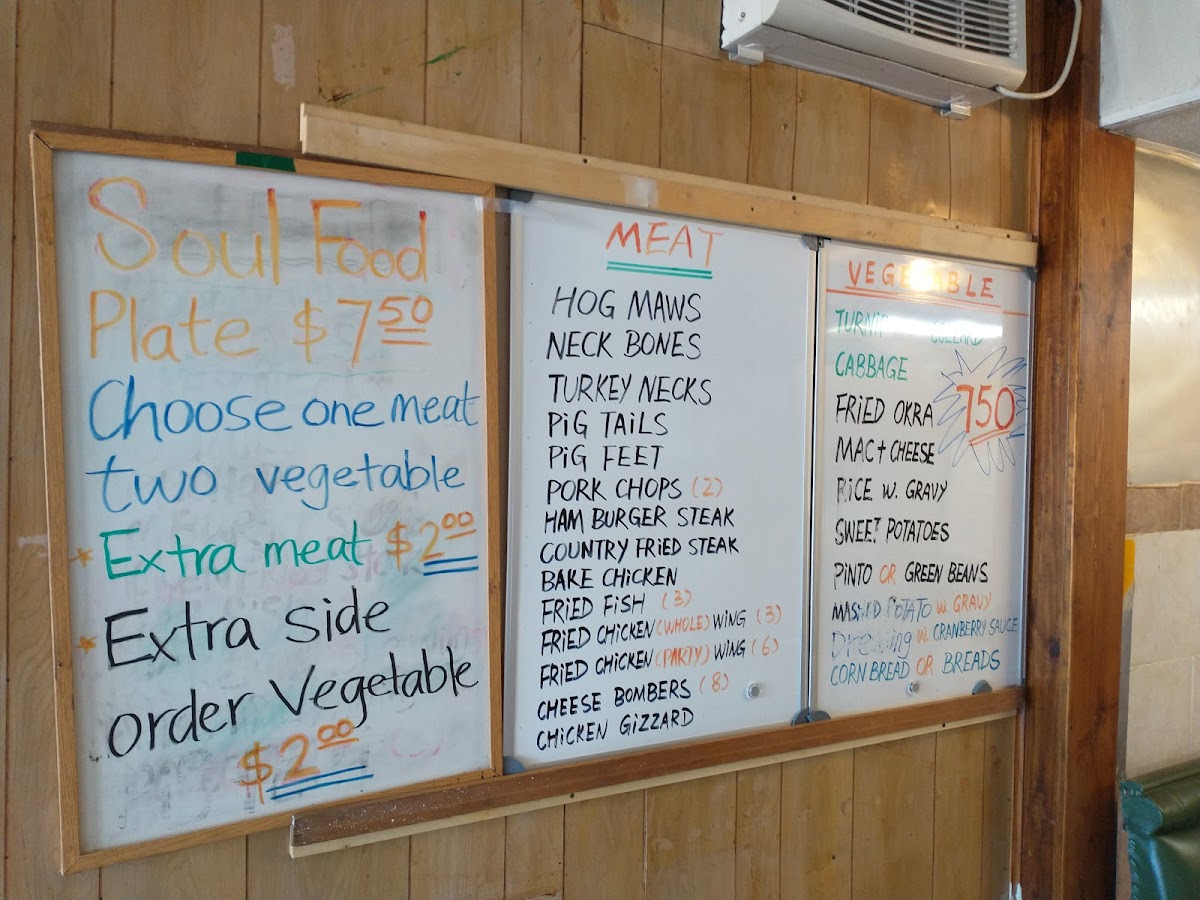 Soul Food
Plate $7 50
Choose one meat
two vegetable
* Extra meat $2 00
* Extra side
order Vegetable
$2 00
MEAT
HOG MAWS
NECK BONES
TURKEY NECKS
PiG TAiLS
PiG FEET
PORK CHOPS (2)
HAM BURGER STEAK
COUNTRY FRiED STEAK
BAKE CHiCKEN
FRiED FiSH (3)
FRiED CHiCKEN (WHOLE) WiNG (3)
FRiED CHiCKEN (PARTY) WiNG (6)
CHEESE BOMBERS (8)
CHiCKEN GiZZARD
VEGETABLE
TURNiP COLLARD
CABBAGE
FRiED OKRA
750
MAC + CHEESE
RiCE W. GRAVY
SWEET POTATOES
PiNTO OR GREEN BEANS
MASHED POTATO W. GRAVY
W. CRANBERRY SAUCE
CORN BREAD OR BREADS